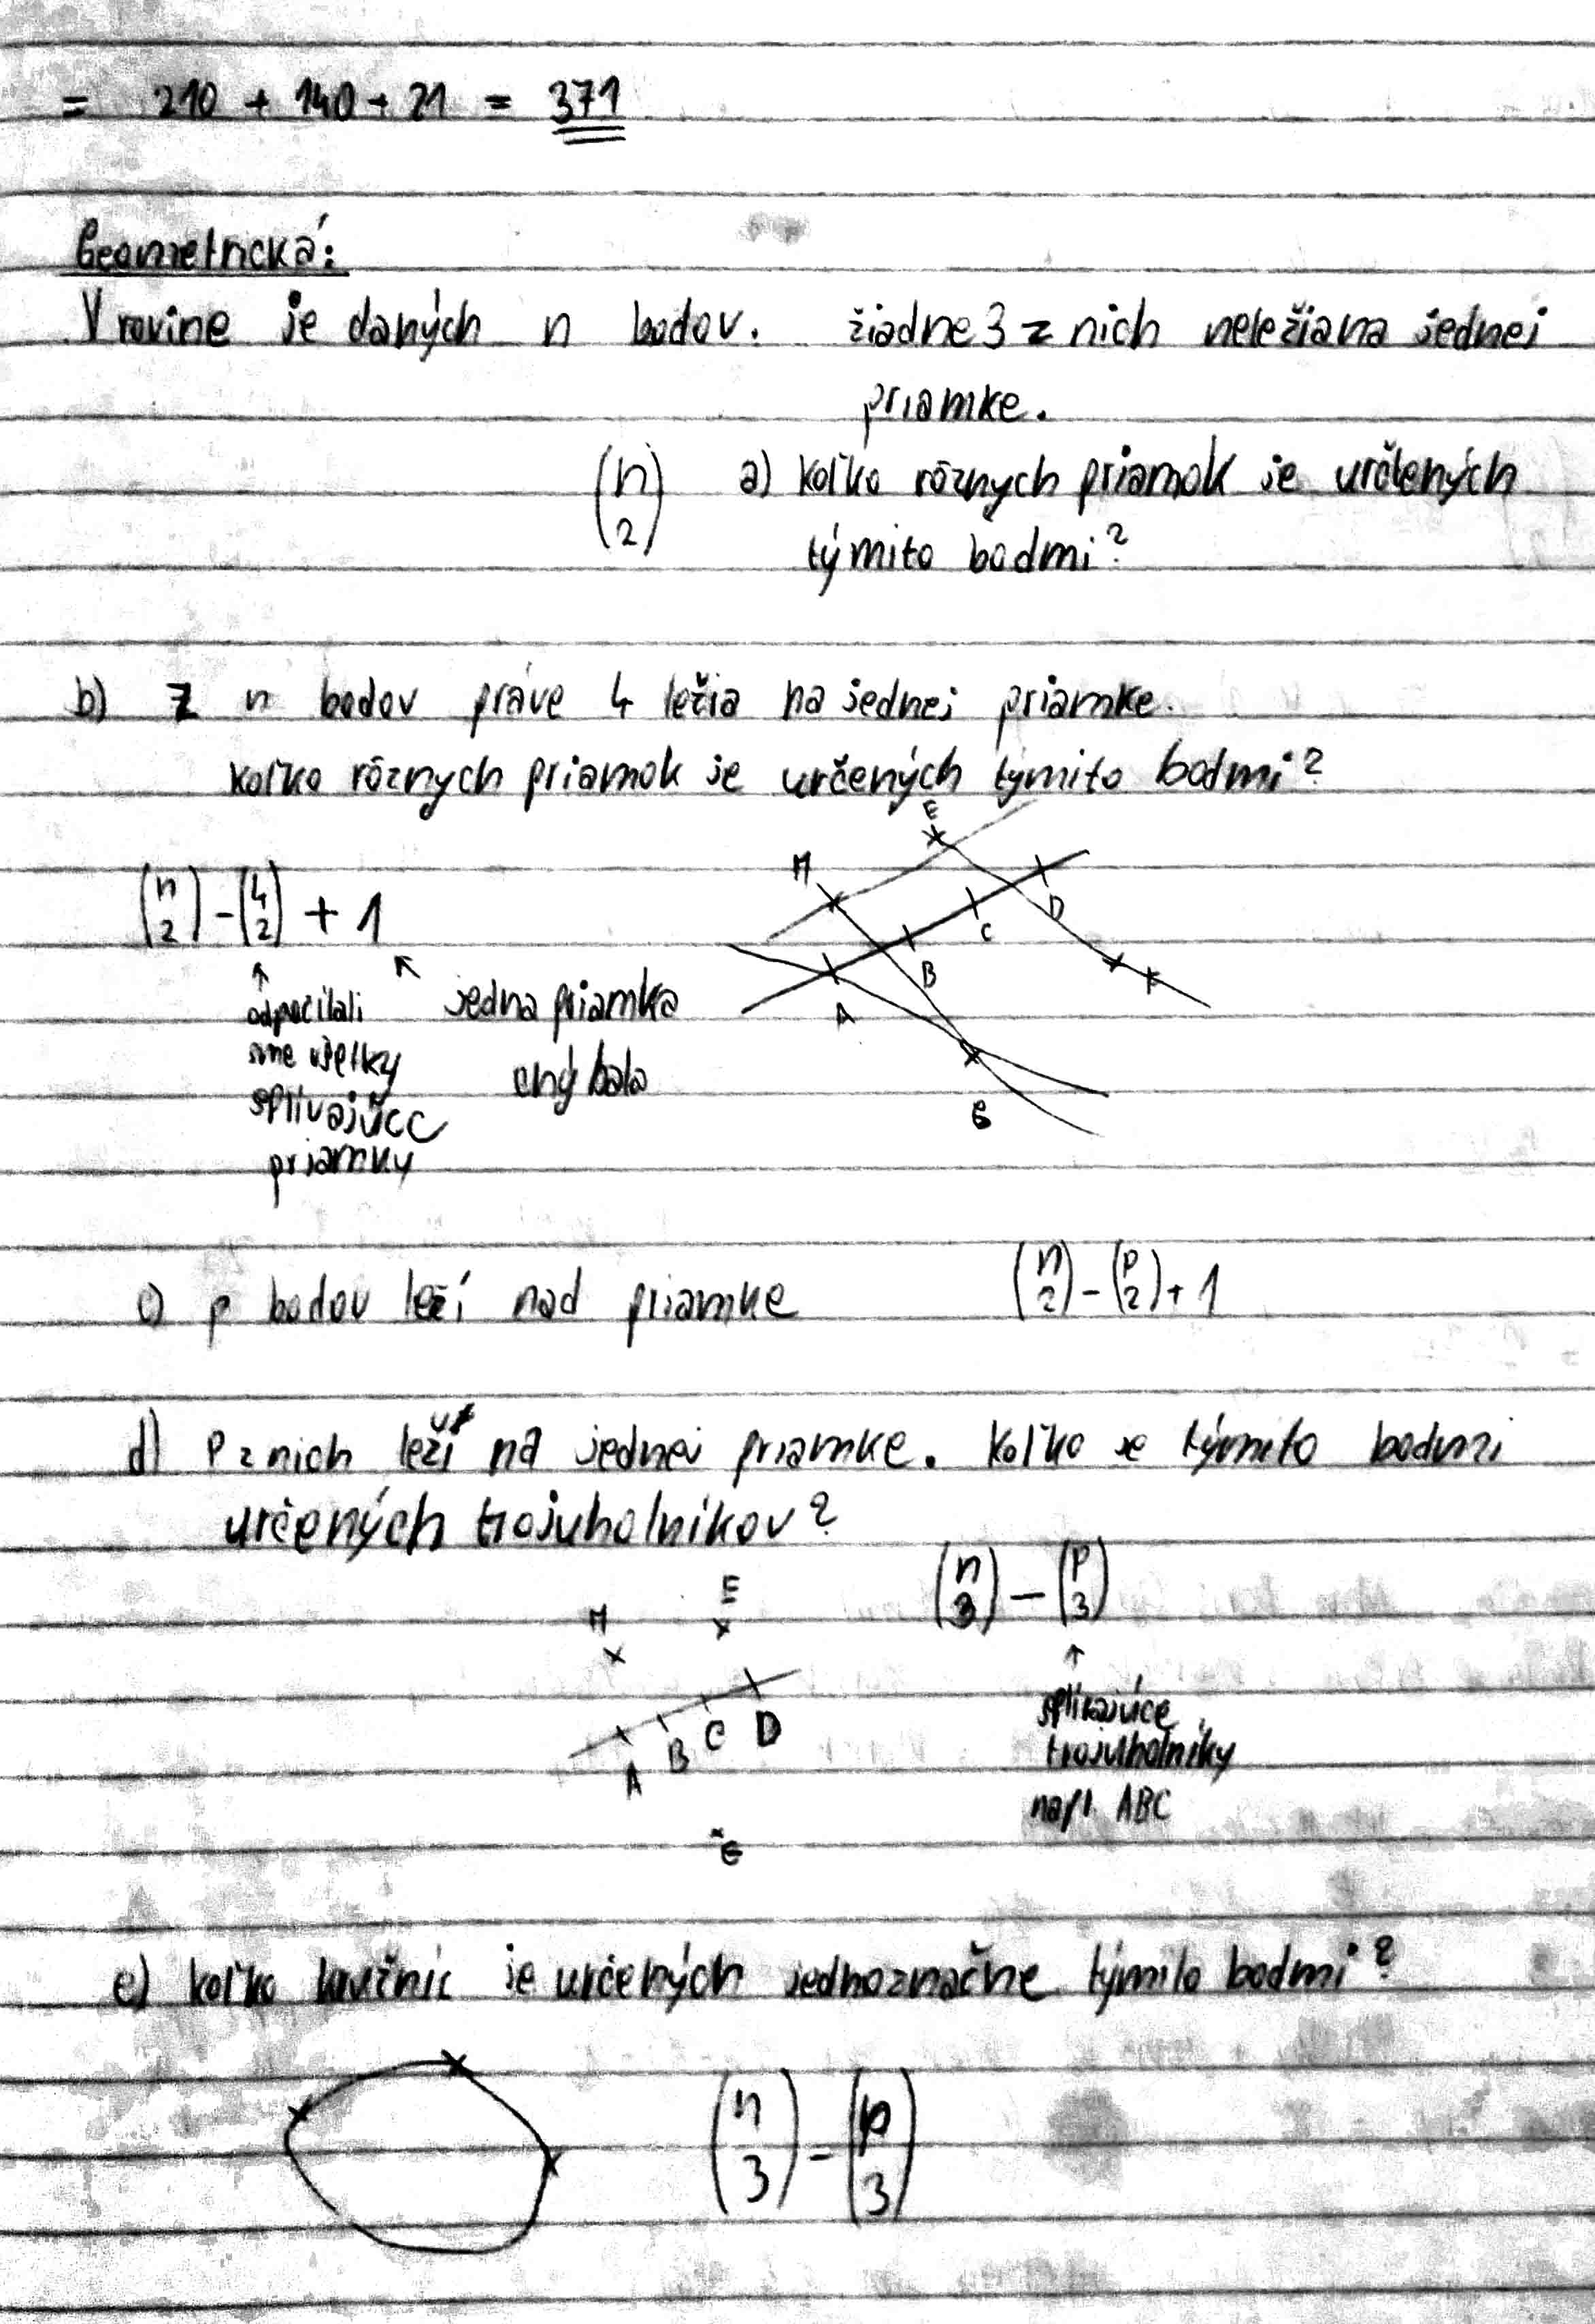 = 210 + 140 + 21 = 371
Geometrická:
V rovine je daných n bodov. žiadne 3 z nich neležia na jednej
priamke.
(n 2) a) koľko rôznych priamok je určených
týmito bodmi?
b) z n bodov práve 4 ležia na jednej priamke.
koľko rôznych priamok je určených týmito bodmi?
E
M
(n 2) - (4 2) + 1
D
C
B
A
F
↑ ↖
odpočítali jedna priamka
sme všetky chýbala
splívajúce
priamky
G
c) p bodov leží nad priamke (n 2) - (p 2) + 1
d) p z nich leží na jednej priamke. Koľko je týmito bodmi
určených trojuholníkov?
(n 3) - (p 3)
E
M
↑
splívajúce
trojuholníky
napr. ABC
A B C D
G
e) koľko kružníc je určených jednoznačne týmito bodmi?
(n 3) - (p 3)